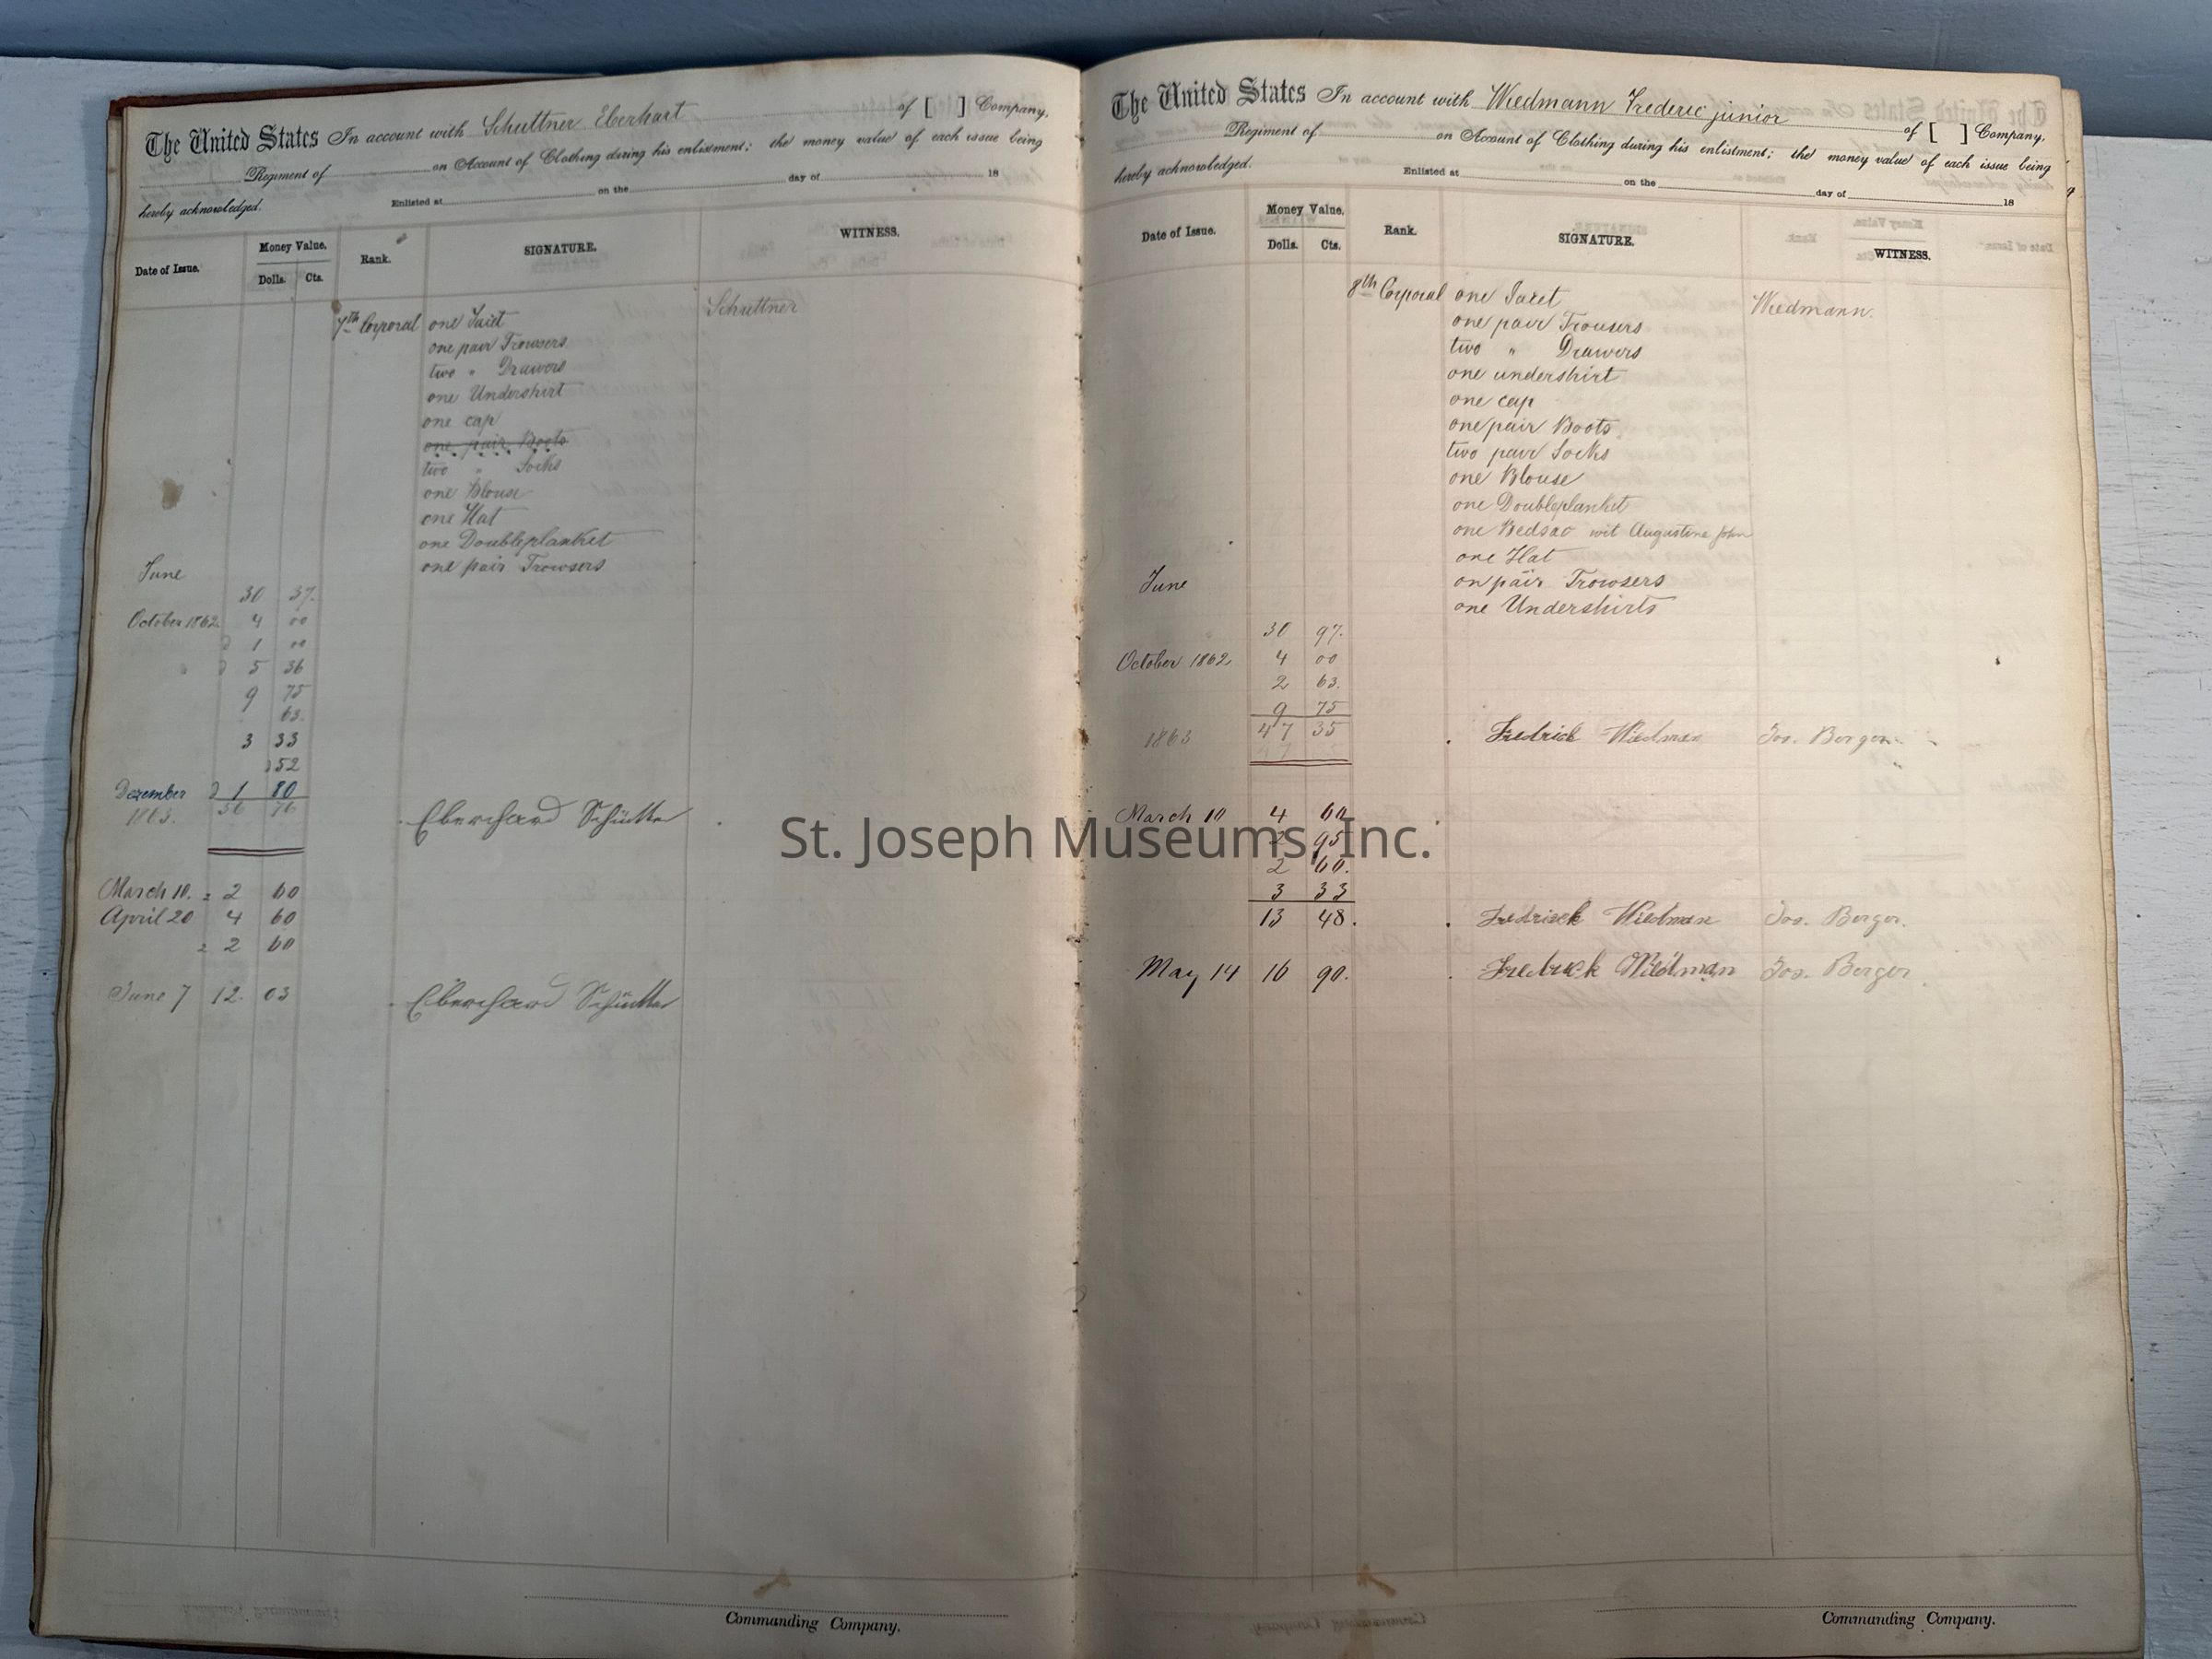 The United States In account with Schuttner Eberhart of [ ] Company,
Regiment of on Account of Clothing during his enlistment; the money value of each issue being
hereby acknowledged. Enlisted at on the day of 18
Date of Issue. Money Value. Rank. SIGNATURE. WITNESS.
Dolls. Cts.
7th Corporal one Jacet Schuttner
one pair Trowsers
two " Drawers
one Undershirt
one cap
one pair Boots
two " Socks
one Blouse
one Hat
one Doubleplanket
one pair Trowsers
June
30 37.
October 1862 4 00
1 00
5 36
9 75
63.
3 33
52
Dezember 1 80
1863. 56 76
Eberhard Schütter
March 10. 2 60
April 20 4 60
2 60
June 7 12. 03 Eberhard Schütter
Commanding Company.
The United States In account with Wiedmann Frederic junior of [ ] Company.
Regiment of on Account of Clothing during his enlistment; the money value of each issue being
hereby acknowledged. Enlisted at on the day of 18
Date of Issue. Money Value. Rank. SIGNATURE. WITNESS.
Dolls. Cts.
8th Corporal one Jacet Wiedmann.
one pair Trousers
two " Drawers
one undershirt
one cap
one pair Boots
two pair Socks
one Blouse
one Doubleplanket
one Bedsac wit Augustine John
one Hat
June on pair Trowsers
one Undershirts
30 97.
October 1862 4 00
2 63.
9 75
1863 47 35 Fredrick Wiedman Jos. Berger
March 10 4 60
2 95
2 60.
3 33
13 48. Fredrick Wiedman Jos. Berger.
May 14 16 90. Fredrick Wiedman Jos. Berger
Commanding Company.
St. Joseph Museums, Inc.